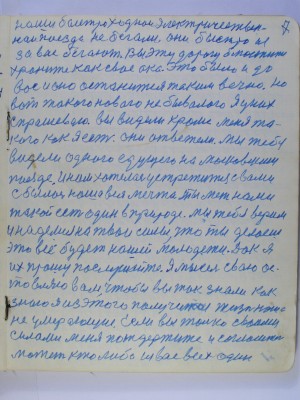 7
наши быстроходною электричеством
наипоезда не бегали. они быстро из
за вас бегают. Вы эту дорогу
храните как свое ока. Это было и до
вас и оно останется таким вечно. Но
вот такого нового не бывалого я у них
спрашеваю. Вы видели кроме меня та-
кого как я есть. они ответели. Мы тебу
видели одного едущего на московским
поизде. И нам хотелось устретится с вами
сбылась наша вся мечта. Ты меж нами
такой есть один в природе. Мы тебе верим
и надеимся на твои силы это ты делаеш
это всё будет нашей молодежи. Вот я
их прошу послушайте. Я писал свою
вам чтобы вы так знали как
знаю я из этого получется жизнь
не умерающие Если вы только своими
силами меня поддержите и согласитесь
может кто либо из вас всех один